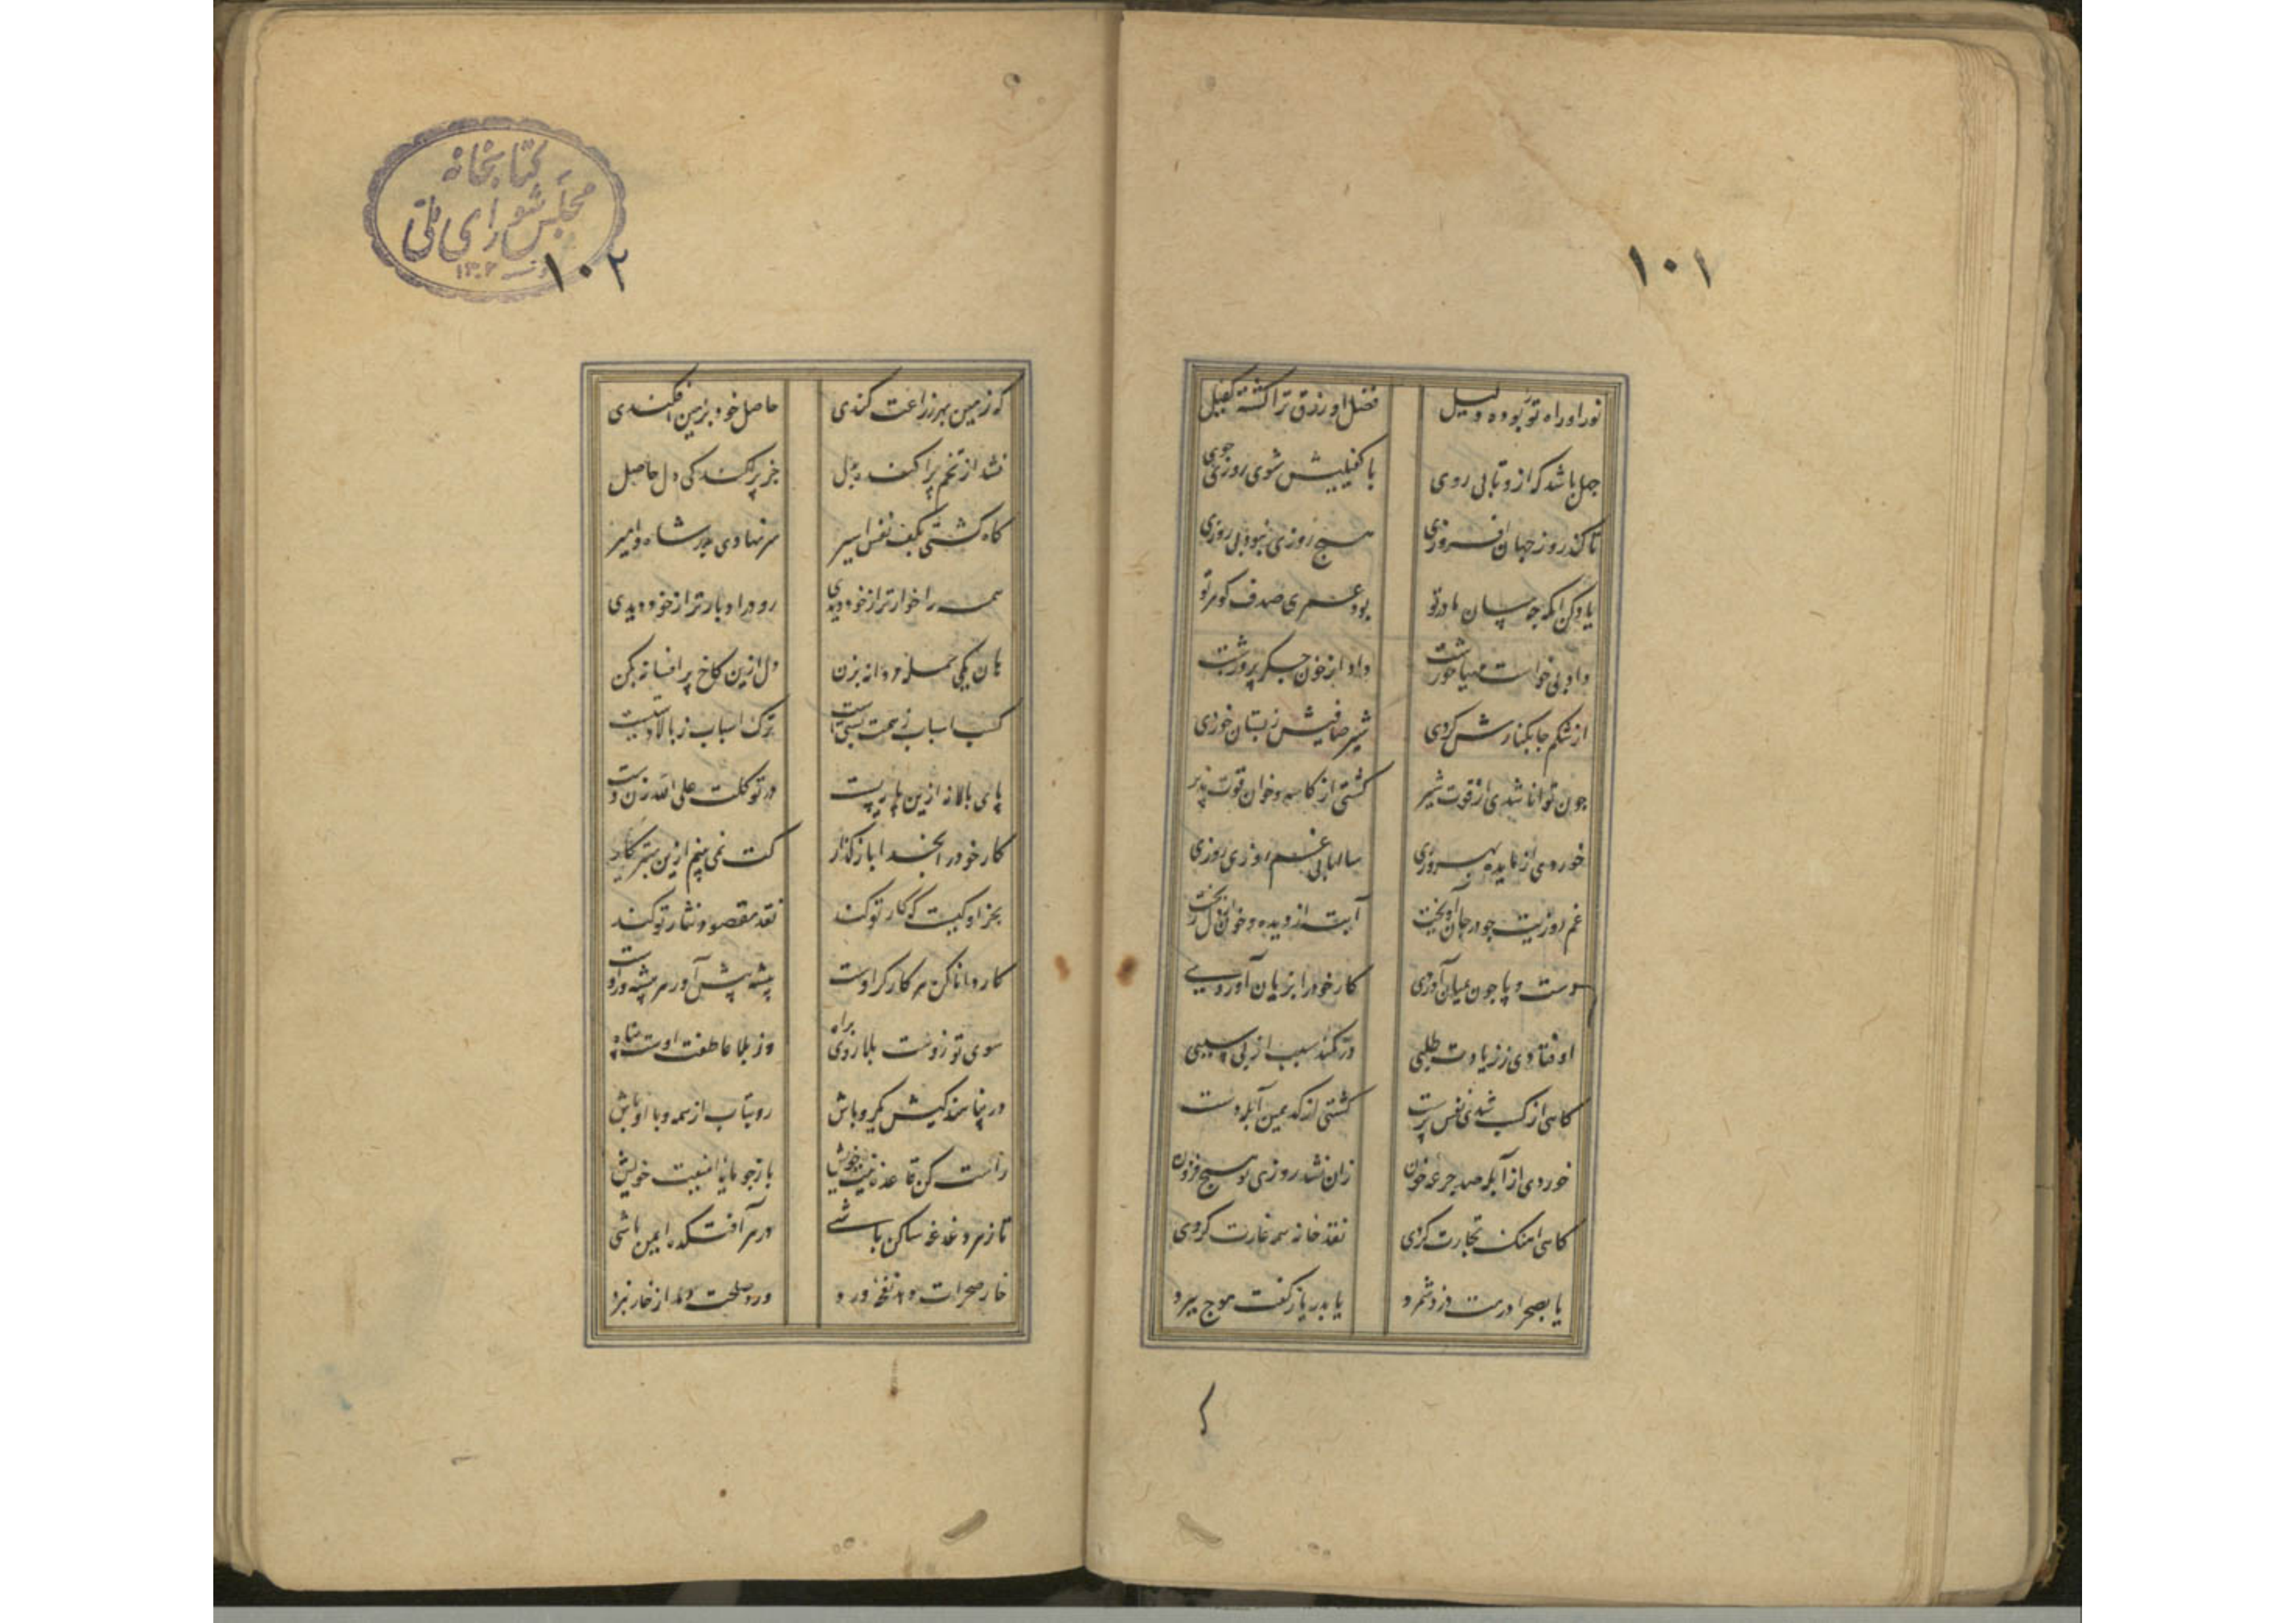 ۱۰۱
نور او راه ترا بوده دلیل فضل او رزق ترا کشته کفیل
جهل باشد که ازو تابی روی با کفیلیش شوی روزی جوی
تا کند روز جهان افروزی هیچ روزی نبود بی روزی
یاد کن انکه چه سان مادر تو بود عمری صدف کوهر تو
داد بی خواست مهیا خورشت داد از خون جکر پرورشت
از شکم جا بکنارش کردی شیر صافیش ز پستان خوردی
چون توانا شدی از قوت شیر کشتی از کاسه و خوان قوت پذیر
خوردی از مایده بهروزی سالها بی غم روزی روزی
غم روزیت چو در جان آویخت آبت از دیده و خون از دل ریخت
دست و پا چون بمیان آوردی کار خود را بزیان آوردی
اوفتادی ز زیادت طلبی در کمند سبب از بی سببی
کاهی از کسب شدی نفس پرست کشتی از کد یمین آبله دست
خوردی از آبله صد جرعه خون زان نشد روزی تو هیچ فزون
کاهی اهنک تجارت کردی نقد خانه همه غارت کردی
یا بصحرا درمت دزد شمرد یا بدریا ز کفت موج ببرد
کتابخانه
مجلس شورای ملی
۱۳۰۲
۱۰۲
که زمین بهر زراعت کندی حاصل خود بزمین افکندی
نشد از تخم پراکنده بکل جز پراکندکی دل حاصل
کاه کشتی بکف نفس اسیر سر نهادی بدر شاه و امیر
همه را خوارتر از خود دیدی رو در ادبارتر از خود دیدی
هان یکی حمله مردانه بزن دل ازین کاخ پر افسانه بکن
کسب اسباب ز همت پستیست ترک اسباب ز بالادستیست
پای بالا نه ازین پایه پست در توکلت علی الله زن دست
کار خود را بخدا باز کذار کت نمی بینم ازین بهتر کار
بجز او کیست که کار تو کند نقد مقصود نثار تو کند
کار دانا کن هر کارکر اوست پیشه پیش آور هر پیشه ور اوست
سوی تو زوست بلا را ره و راه وز بلا عاطفت اوست پناه
در پناهندکیش یکرو باش رو بتاب از همه و با او باش
راست کن قاعده نیت خویش باز جو مایه امنیت خویش
تا ز هر دغدغه ساکن باشی در هر آفتکده ایمن باشی
خار صحرات دهد نفحه ورد ورد صلحت دمد از خار نبرد